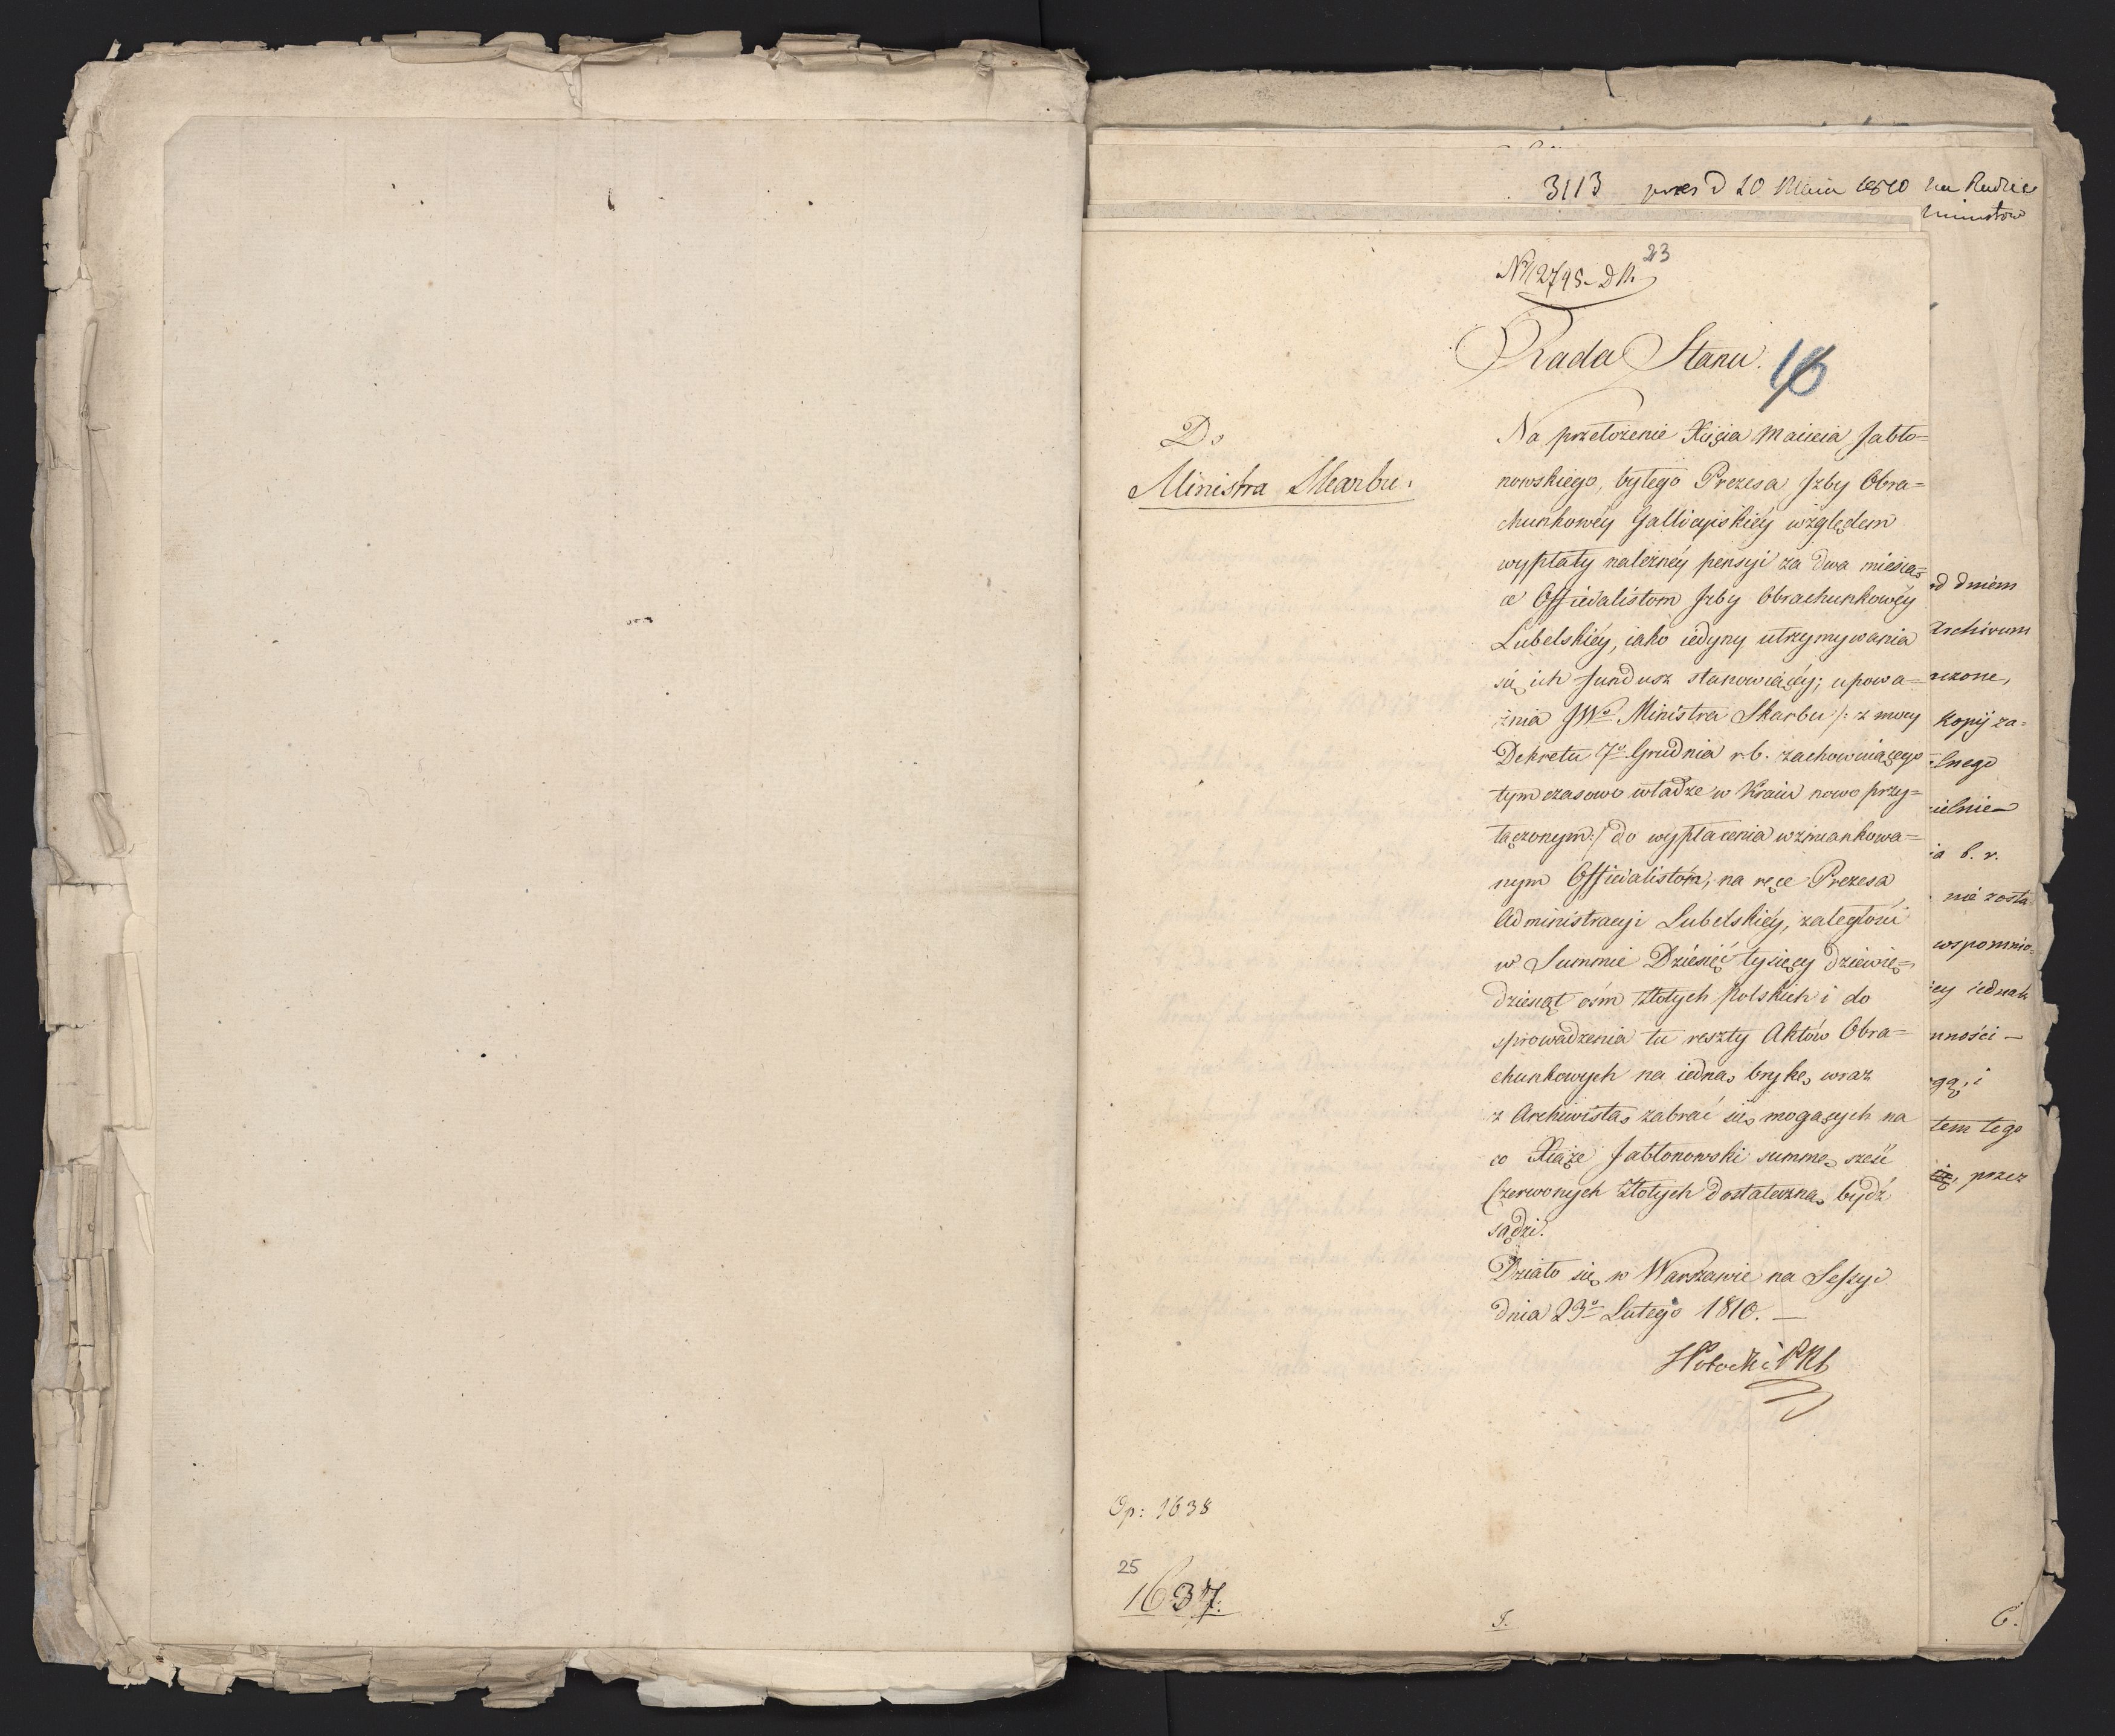 3113 prez d 20 Maia 1810 na Radzie
Ministrow
23
No 12795. D M
Rada Stanu.
16
Do
Ministra Skarbu.
Na przełożenie Xięcia Macieia Jabło=
nowskiego, byłego Prezesa Jzby Obra=
chunkowéy Gallicyiskiéy względem
wypłaty należnéy pensyi za dwa miesią=
ce Officialistom Jzby Obrachunkowéy
Lubelskiéy, iako iedyny utrzymywania
się ich fundusz stanowiącéy; upowa=
żnia JWo Ministra Skarbu /: z mocy
Dekretu 7o Grudnia r.b. zachowuiącego
tymczasowo władze w Kraiu nowo przy=
łączonym :/ do wypłacenia wzmiankowa=
nym Officialistom, na ręce Prezesa
Administracyi Lubelskiéy, zaległości
w Summie Dziesięć tysięcy dziewię=
dziesiąt ośm Złotych Polskich i do
sprowadzenia tu reszty Aktów Obra=
chunkowych na iedną brykę wraz
z Archiwistą zabrać się mogących na
co Xiąże Jabłonowski summę sześć
Czerwonych Złotych dostateczną bydź
sądzi.
Działo się w Warszawie na Sessyi
dnia 23o Lutego 1810. —
Potocki
Op: 1638
25
1637.
J.
od dniem
Archivum
czone,
Kopij za=
elnego
zielnie
ia b. r.
nie zosta=
wspomnio=
iey iednak
nności —
gą, i
tem tego
przez
6.